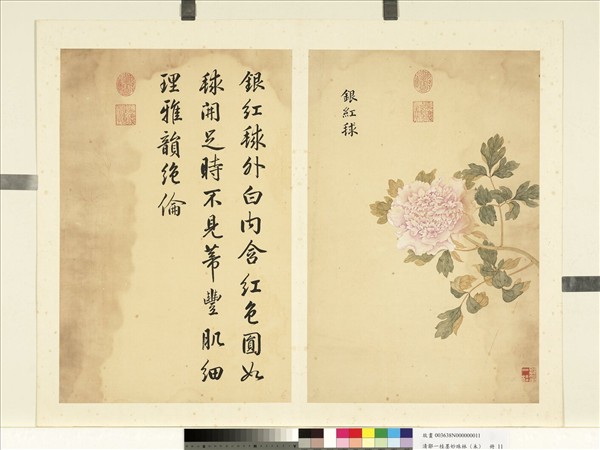 銀紅毬
銀紅毬外白內含紅色圓如
毬開足時不見蒂豐肌細
理雅韻絕倫
故畫 003638N000000011
清鄒一桂墨妙珠林（未） 冊 11